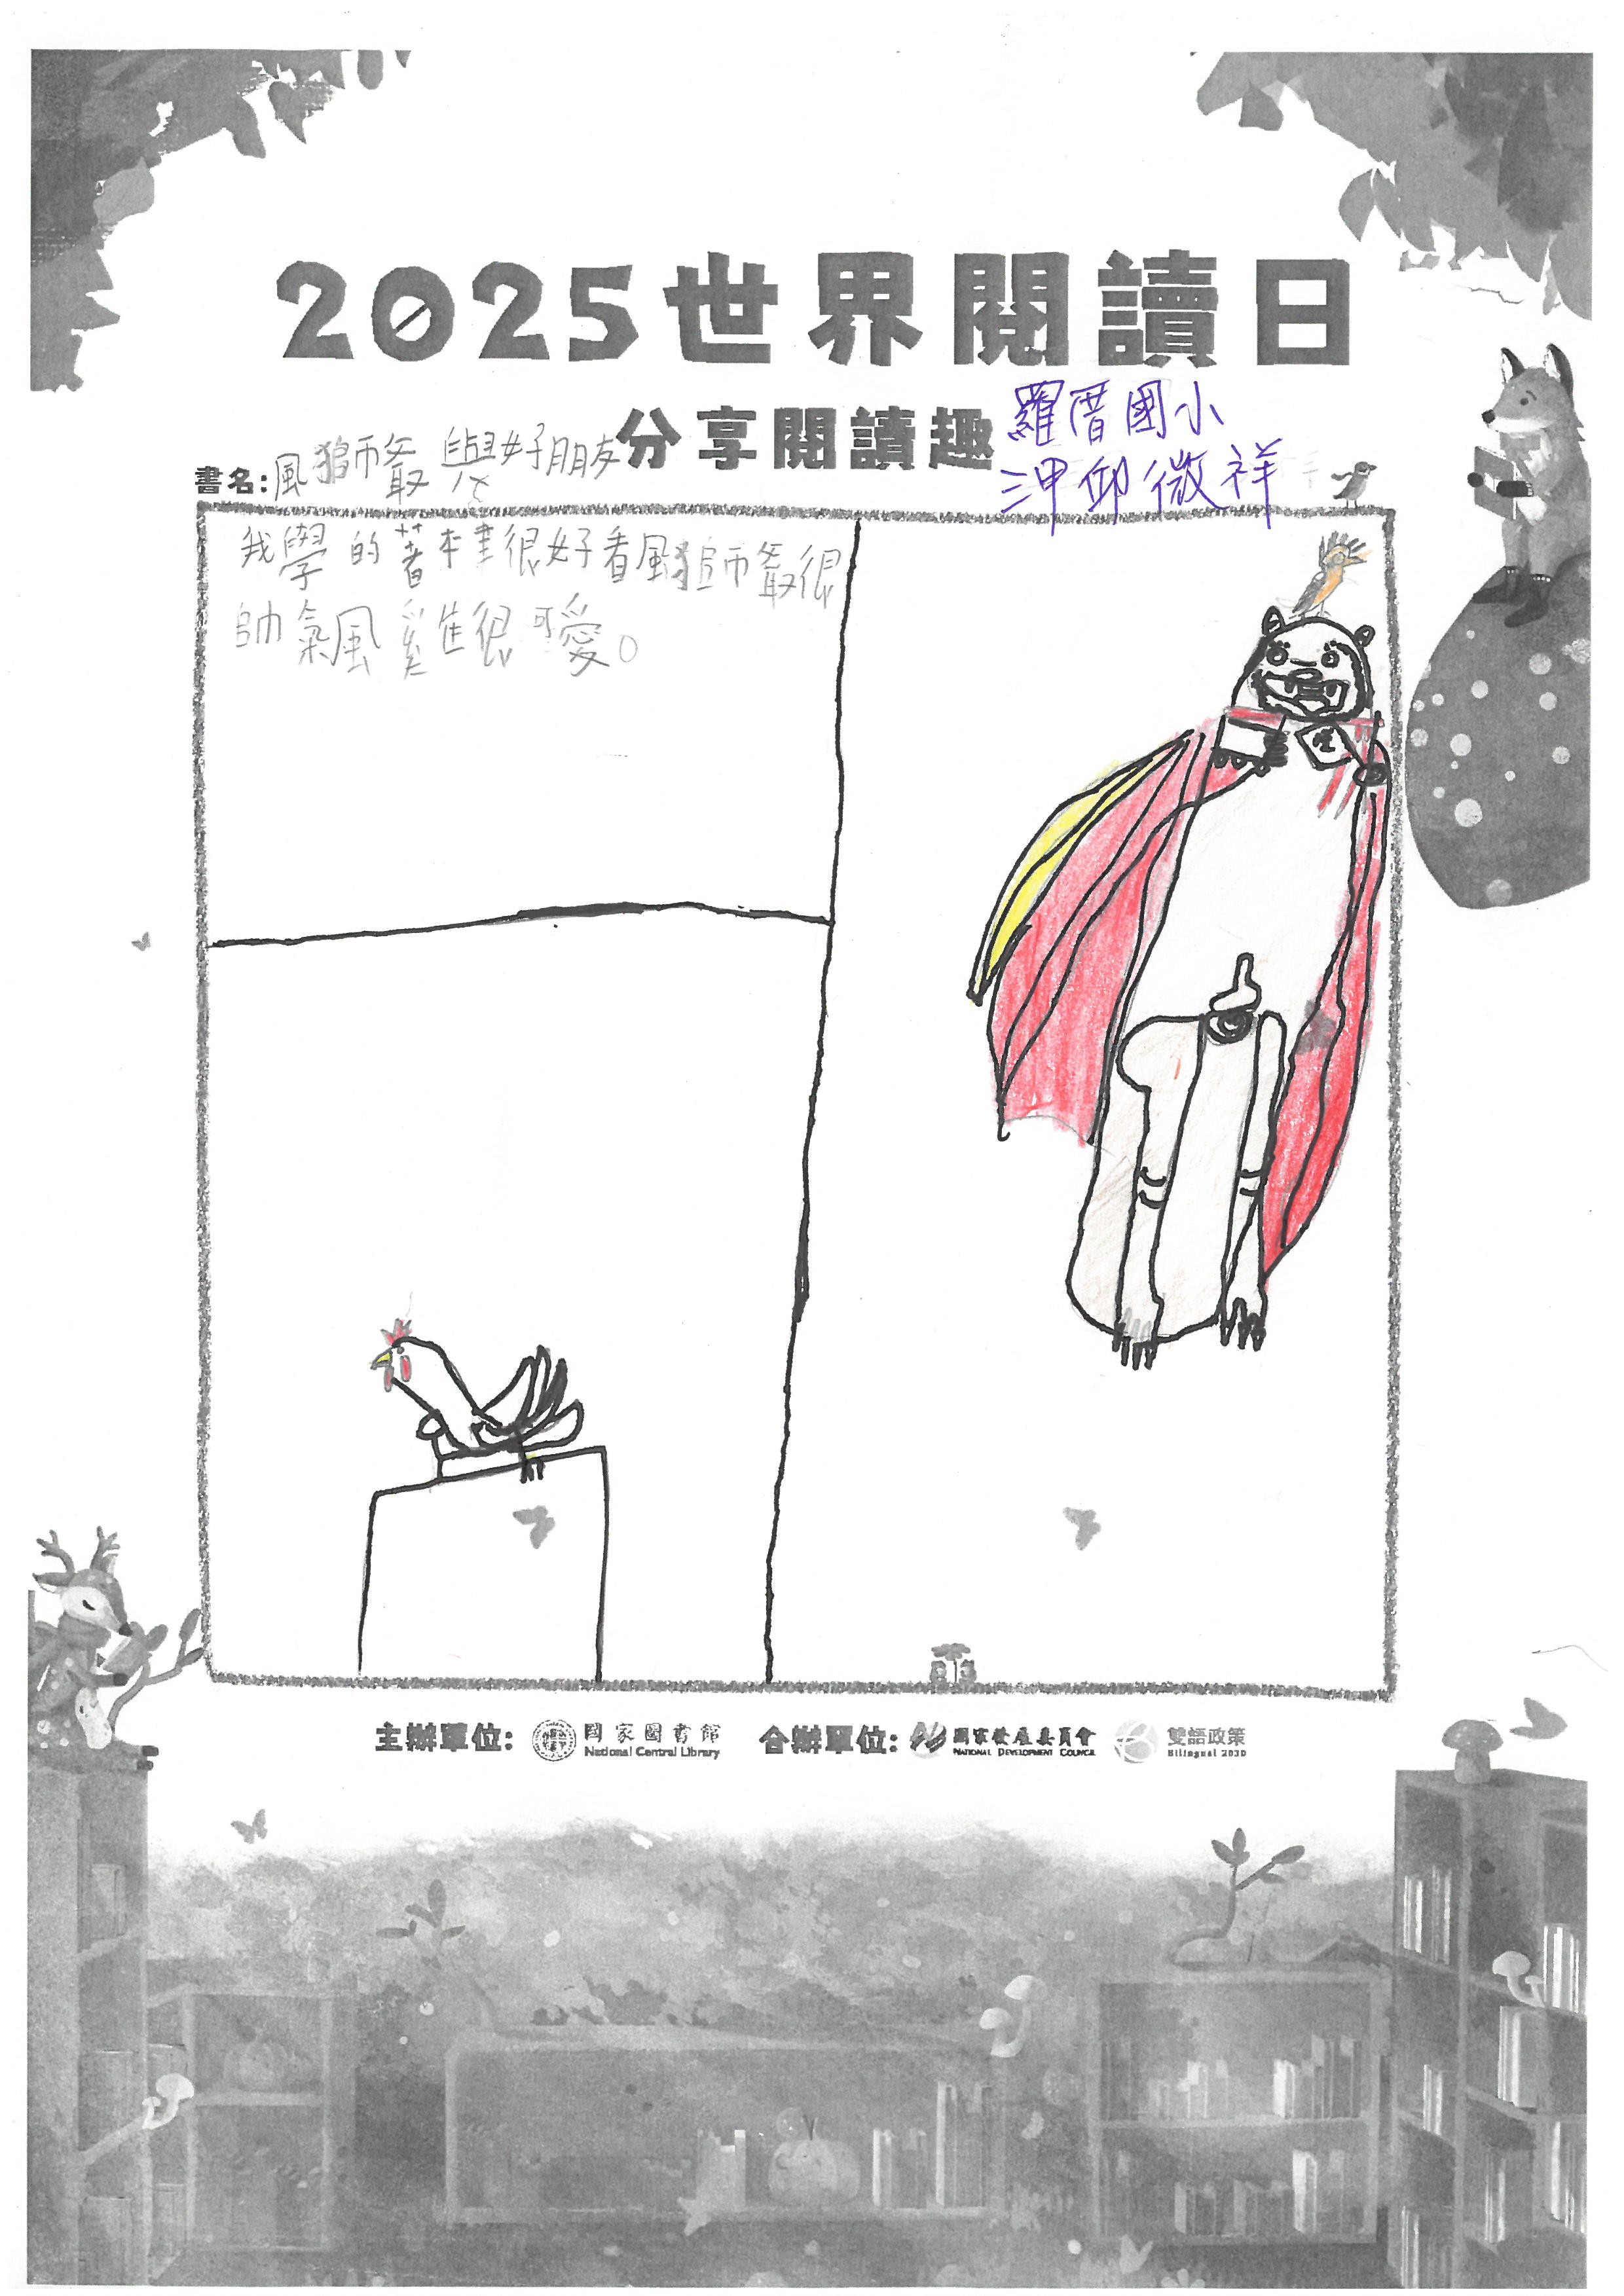 2025世界閱讀日
分享閱讀趣
羅厝國小
三甲邱微祥
書名:風獅爺與好朋友
我學的著本書很好看風獅爺很
帥氣風雞很可愛。
主辦單位: 國家圖書館 National Central Library 合辦單位: 國家發展委員會 NATIONAL DEVELOPMENT COUNCIL 雙語政策 Bilingual 2030